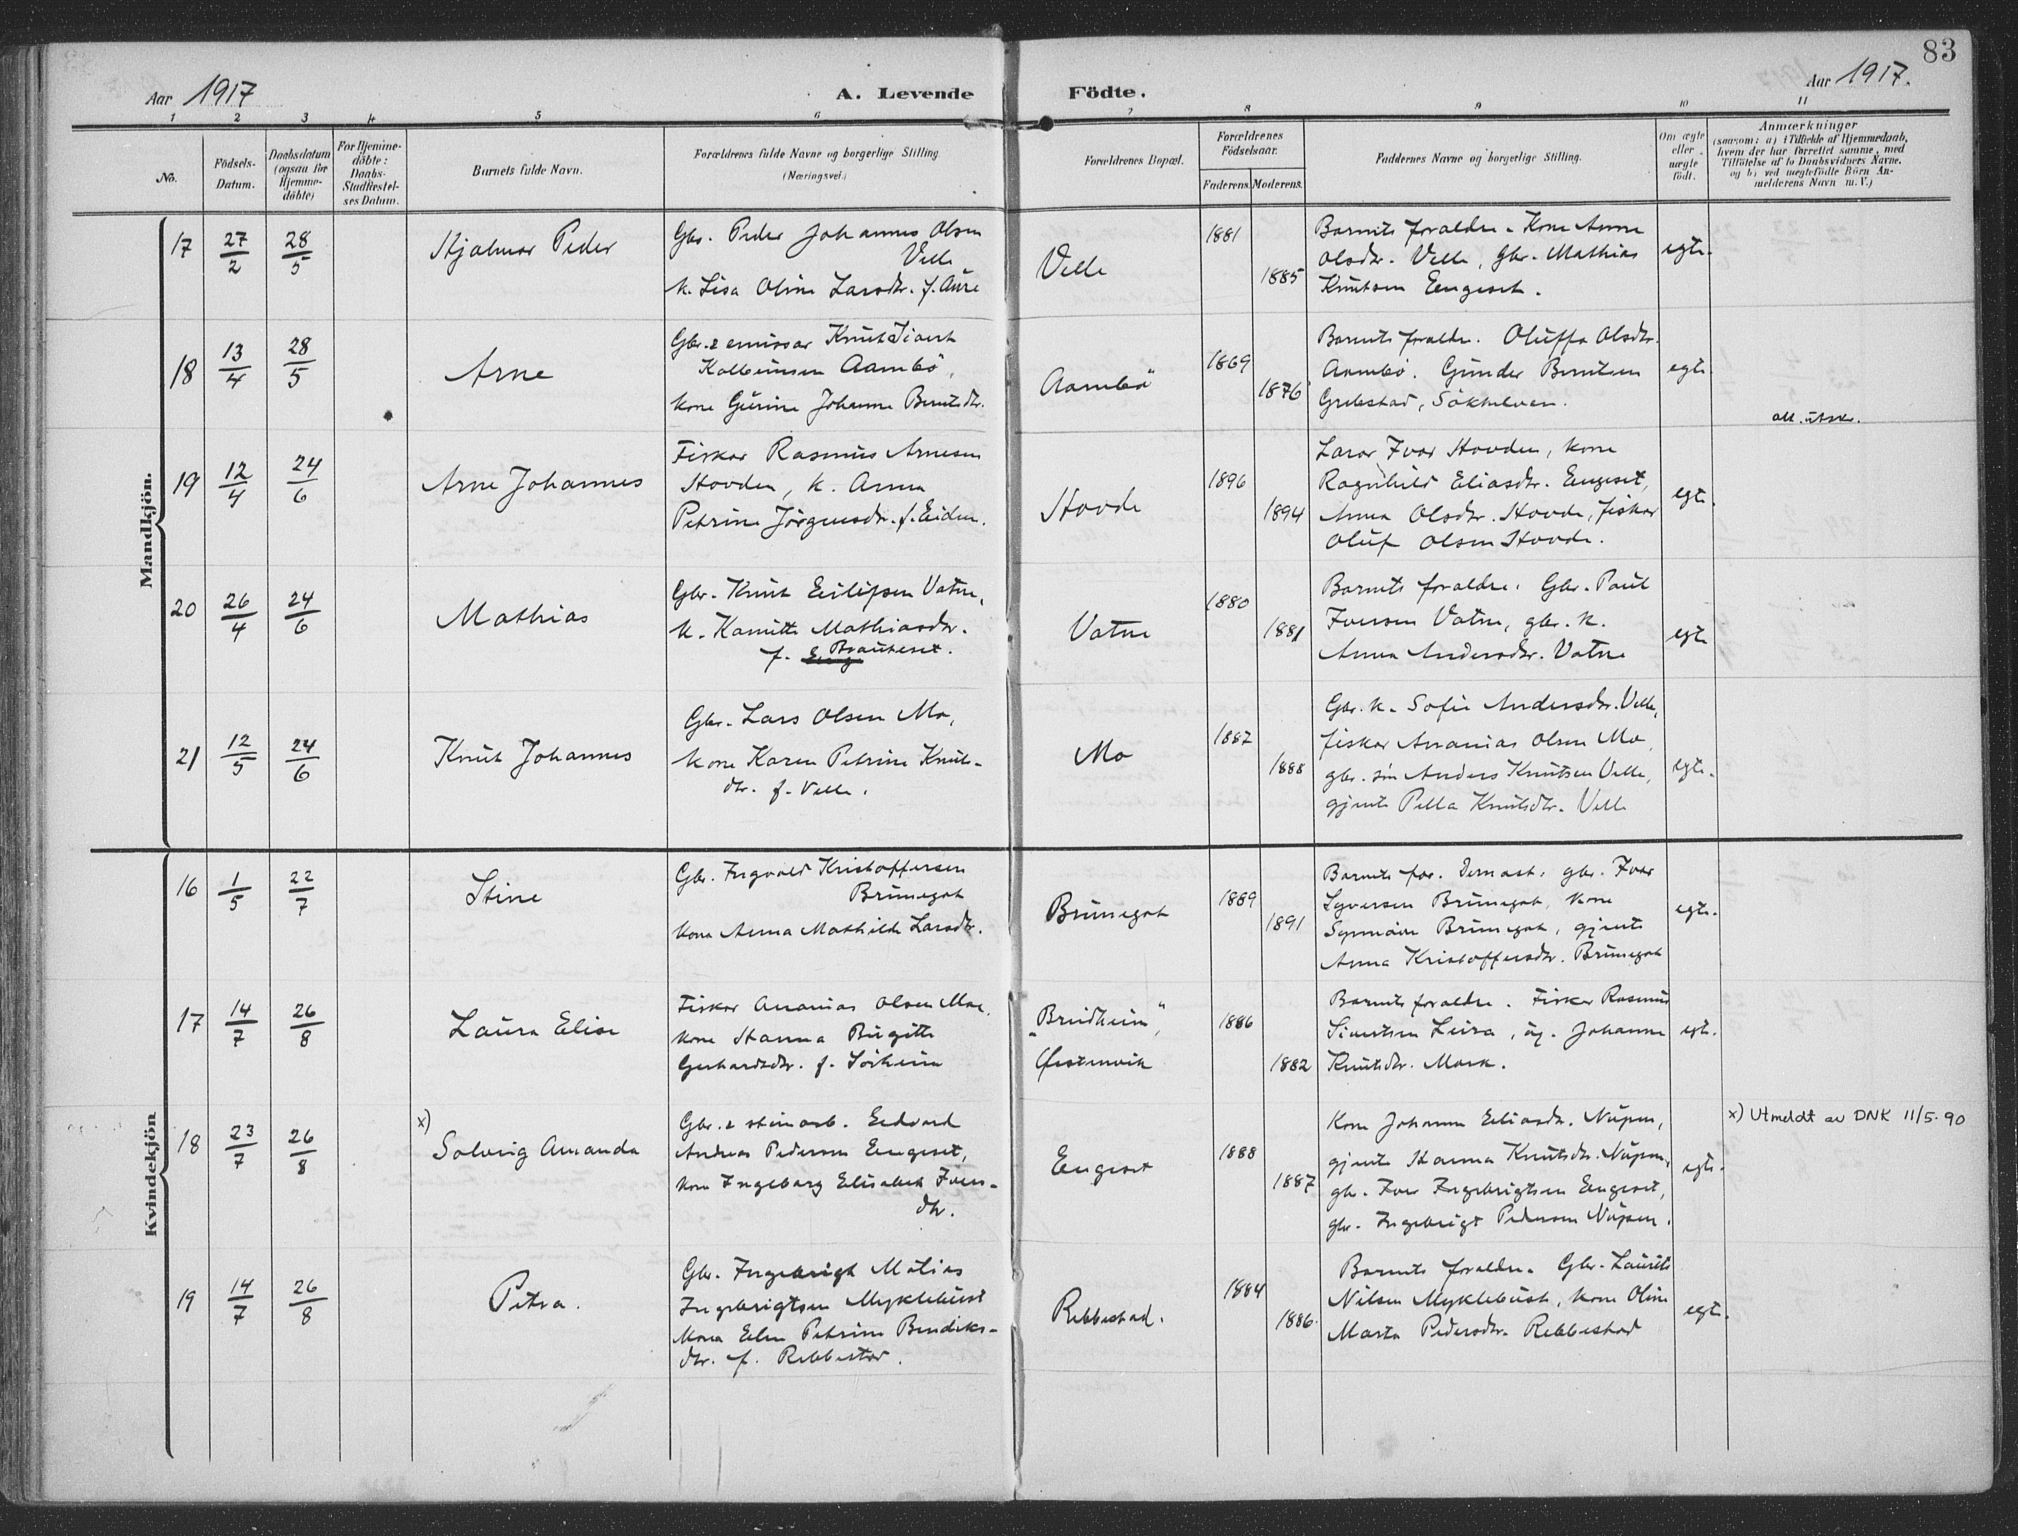 83
Aar 1917
A. Levende
Födte.
Aar 1917.
1 2 3 4 5 6 7 8 9 10 11
No.
Födsels-
Datum.
Daabsdatum
(ogsaa for
Hjemme-
döbte)
For Hjemme-
döbte:
Daabs-
Stadfæstel-
ses Datum.
Barnets fulde Navn.
Forældrenes fulde Navne og borgerlige Stilling
(Næringsvei.)
Forældrenes Bopæl.
Forældrenes
Födselsaar.
Faderens.
Moderens.
Faddernes Navne og borgerlige Stilling.
Om ægte
eller
uægte
födt.
Anmærkninger
(saasom: a) i Tilfælde af Hjemmedaab,
hvem der har forrettet samme, med
Tilföielse af to Daabsvidners Navne.
og b) ved uægtefödte Börn An-
melderens Navn m. V.)
Mandkjön.
17
27/2
28/5
Hjalmar Peder
Gbr. Peder Johannes Olsen
Velle
k. Lisa Oline Larsdtr. f. Aure
Velle
1881
1885
Barnets foraldre. Kone Anne
Olsdtr. Velle, gbr. Mathias
Knutsen Engeset.
egte.
18
13/4
28/5
Arne
Gbr. & emissær Knut Sivert
Kolbeinsen Aambö,
kone Gurine Johanne Berntsdtr.
Aambö
1869
1876
Barnets foraldre. Oluffa Olsdtr.
Aambö. Gunder Berntsen
Grebstad, Sökkelven.
egte.
att. utskr.
19
12/4
24/6
Arne Johannes
Fisker Rasmus Arnesen
Hovden, k. Anna
Petrine Jörgensdtr. f. Eiden.
Hovde
1896
1894
Larer Ivar Hovden, kone
Ragnhild Eliasdtr. Engeset,
Anna Olsdtr. Hovde, fisker
Oluf Olsen Hovde.
egte.
20
26/4
24/6
Mathias
Gbr. Knut Eilifsen Vatne,
k. Kanutte Mathiasdtr.
f. Brauteset.
Vatne
1880
1881
Barnets foraldre. Gbr. Paul
Iversen Vatne, gbr. k.
Anna Andersdtr. Vatne
egte
21
12/5
24/6
Knut Johannes
Gbr. Lars Olsen Mo,
kone Karen Petrine Knuts-
dtr. f. Velle.
Mo
1887
1888
Gbr. k. Sofie Andersdtr. Velle,
fisker Ananias Olsen Mo,
gbr. sön Anders Knutsen Velle,
gjente Pella Knutsdtr. Velle
egte.
Kvindekjön
16
1/5
22/7
Stine
Gbr. Ingvald Kristoffersen
Brunegot
kone Anna Mathilde Larsdtr.
Brunegot
1889
1891
Barnets far. gbr. Ivar
Syversen Brunegot, kone
Brunegot, gjente
Anna Kristoffersdtr. Brunegot
egte.
17
14/7
26/8
Laura Elise
Fisker Ananias Olsen Moe,
kone Hanna Birgitte
Gerhardsdtr. f. Sörheim
"Breidheim",
Ørstenvik
1886
1882
Barnets foraldre. Fisker Rasmus
Sivertsen Leira, ug. Johanne
Knutsdtr. Mork.
egte.
18
23/7
26/8
x)
Solveig Amanda
Gbr. & stenarb. Edvard
Andreas Pedersen Engeset,
kone Ingeborg Elisabeth Ivers-
dtr.
Engeset
1888
1887
Kone Johanne Eliasdtr. Nupen,
gjente Hanna Knutsdtr. Nupen,
gbr. Iver Ingebrigtsen Engeset,
gbr. Ingebrigt Pedersen Nupen.
egte.
x) Utmeldt av DNK 11/5-90
19
14/7
26/8
Petra.
Gbr. Ingebrigt Matias
Ingebrigtsen Myklebust
kone Elen Petrine Bendiks-
dtr. f. Rebbestad.
Rebbestad.
1884
1886
Barnets foraldre. Gbr. Laurits
Nilsen Myklebust, kone Oline
Marta Pedersdtr. Rebbestad
egte.